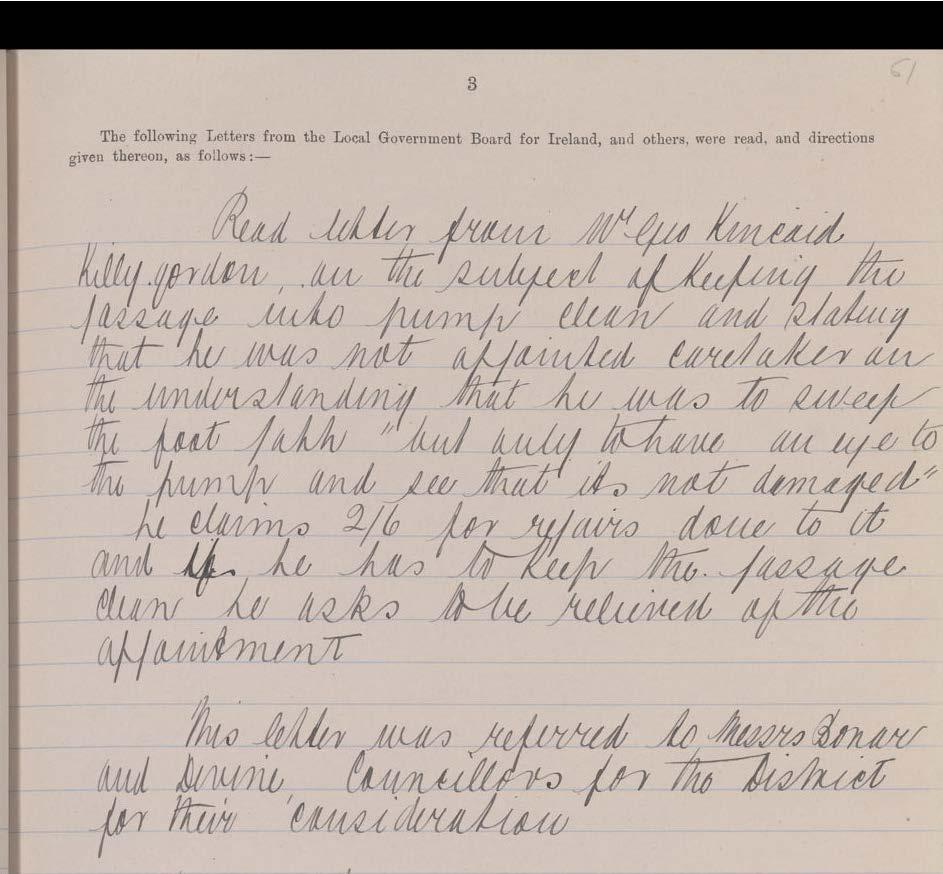 61
3
The following Letters from the Local Government Board for Ireland, and others, were read, and directions
given thereon, as follows:—
Read letter from Mr Geo Kincaid
Killygordon, on the subject of keeping the
passage into pump clean and stating
that he was not appointed caretaker on
the understanding that he was to sweep
the foot path "but only to have an eye to
the pump and see that its not damaged"
he claims 2/6 for repairs done to it
and if he has to keep the passage
clean he asks to be relieved of the
appointment
This letter was referred to Messrs Bonar
and Devine, Councillors for the District
for their consideration